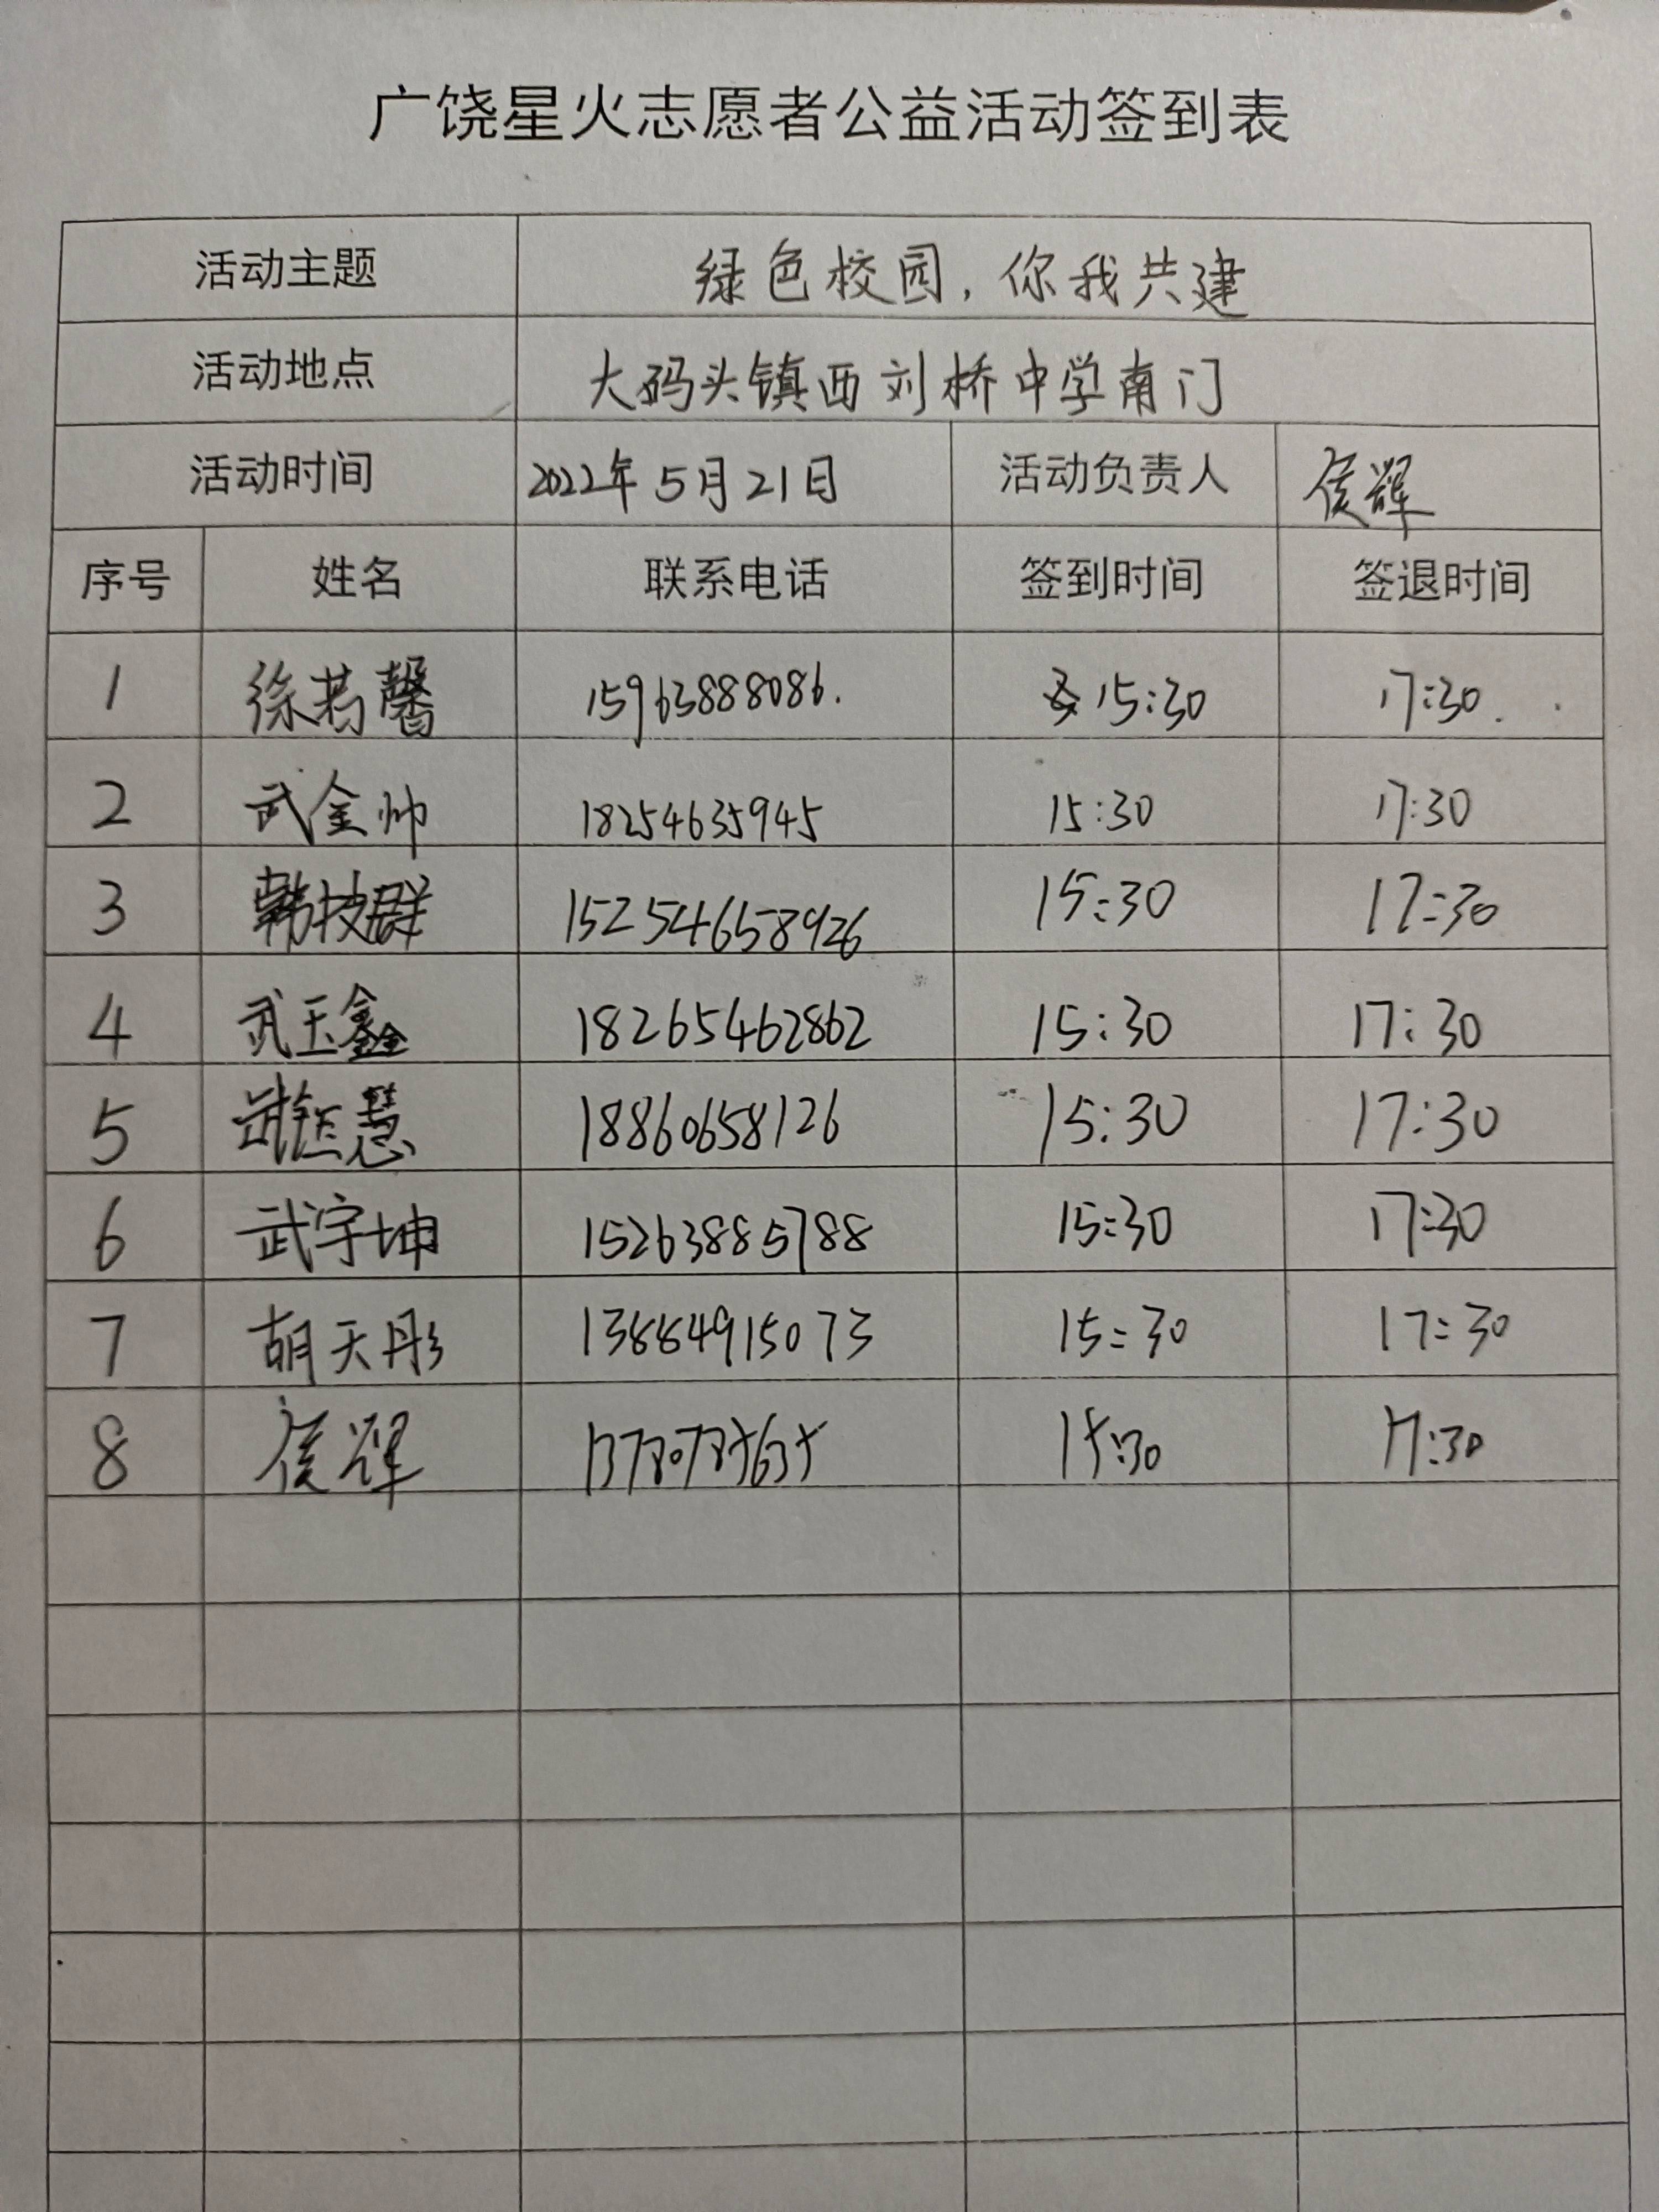 广饶星火志愿者公益活动签到表
活动主题 绿色校园，你我共建
活动地点 大码头镇西刘桥中学南门
活动时间 2022年5月21日 活动负责人 侯辉
序号 姓名 联系电话 签到时间 签退时间
1 徐若馨 15963888086. 15:30 17:30.
2 武金帅 18254635945 15:30 17:30
3 韩技群 152546658926 15:30 17:30
4 武玉鑫 18265462862 15:30 17:30
5 武钰慧 18860658126 15:30 17:30
6 武宇坤 15263885788 15:30 17:30
7 胡天彤 13884915073 15:30 17:30
8 侯辉 15:30 17:30